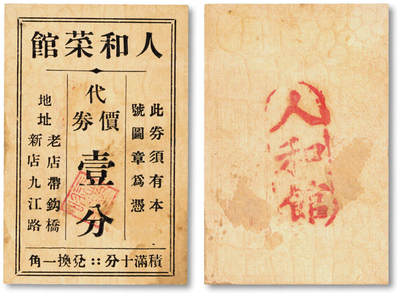 人和菜館
此券須有本
號圖章為憑
代價券
壹分
地址
老店帶鈎橋
新店九江路
積滿十分::兌換一角
人和館